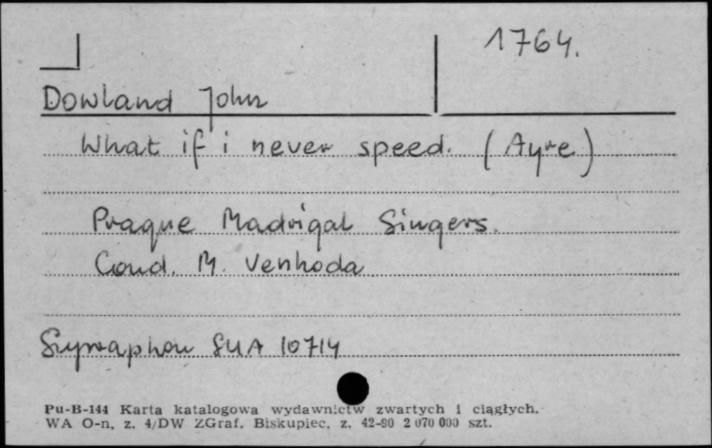 1764.
Dowland John
What if i never speed. (Ayre)
Prague Madrigal Singers.
Cond. M. Venhoda
Supraphon SUA 10714
Pu-B-144 Karta katalogowa wydawnictw zwartych i ciągłych.
WA O-n, z. 4/DW ZGraf. Biskupiec, z. 42-80 2 070 000 szt.